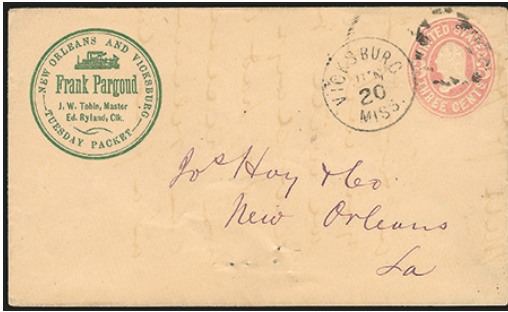 NEW ORLEANS AND VICKSBURG
Frank Pargoud
J. W. Tobin, Master
Ed. Ryland, Clk.
TUESDAY PACKET
VICKSBURG
JUN
20
MISS.
UNITED STATES
THREE CENTS
Jos Hoy & Co
New Orleans
La